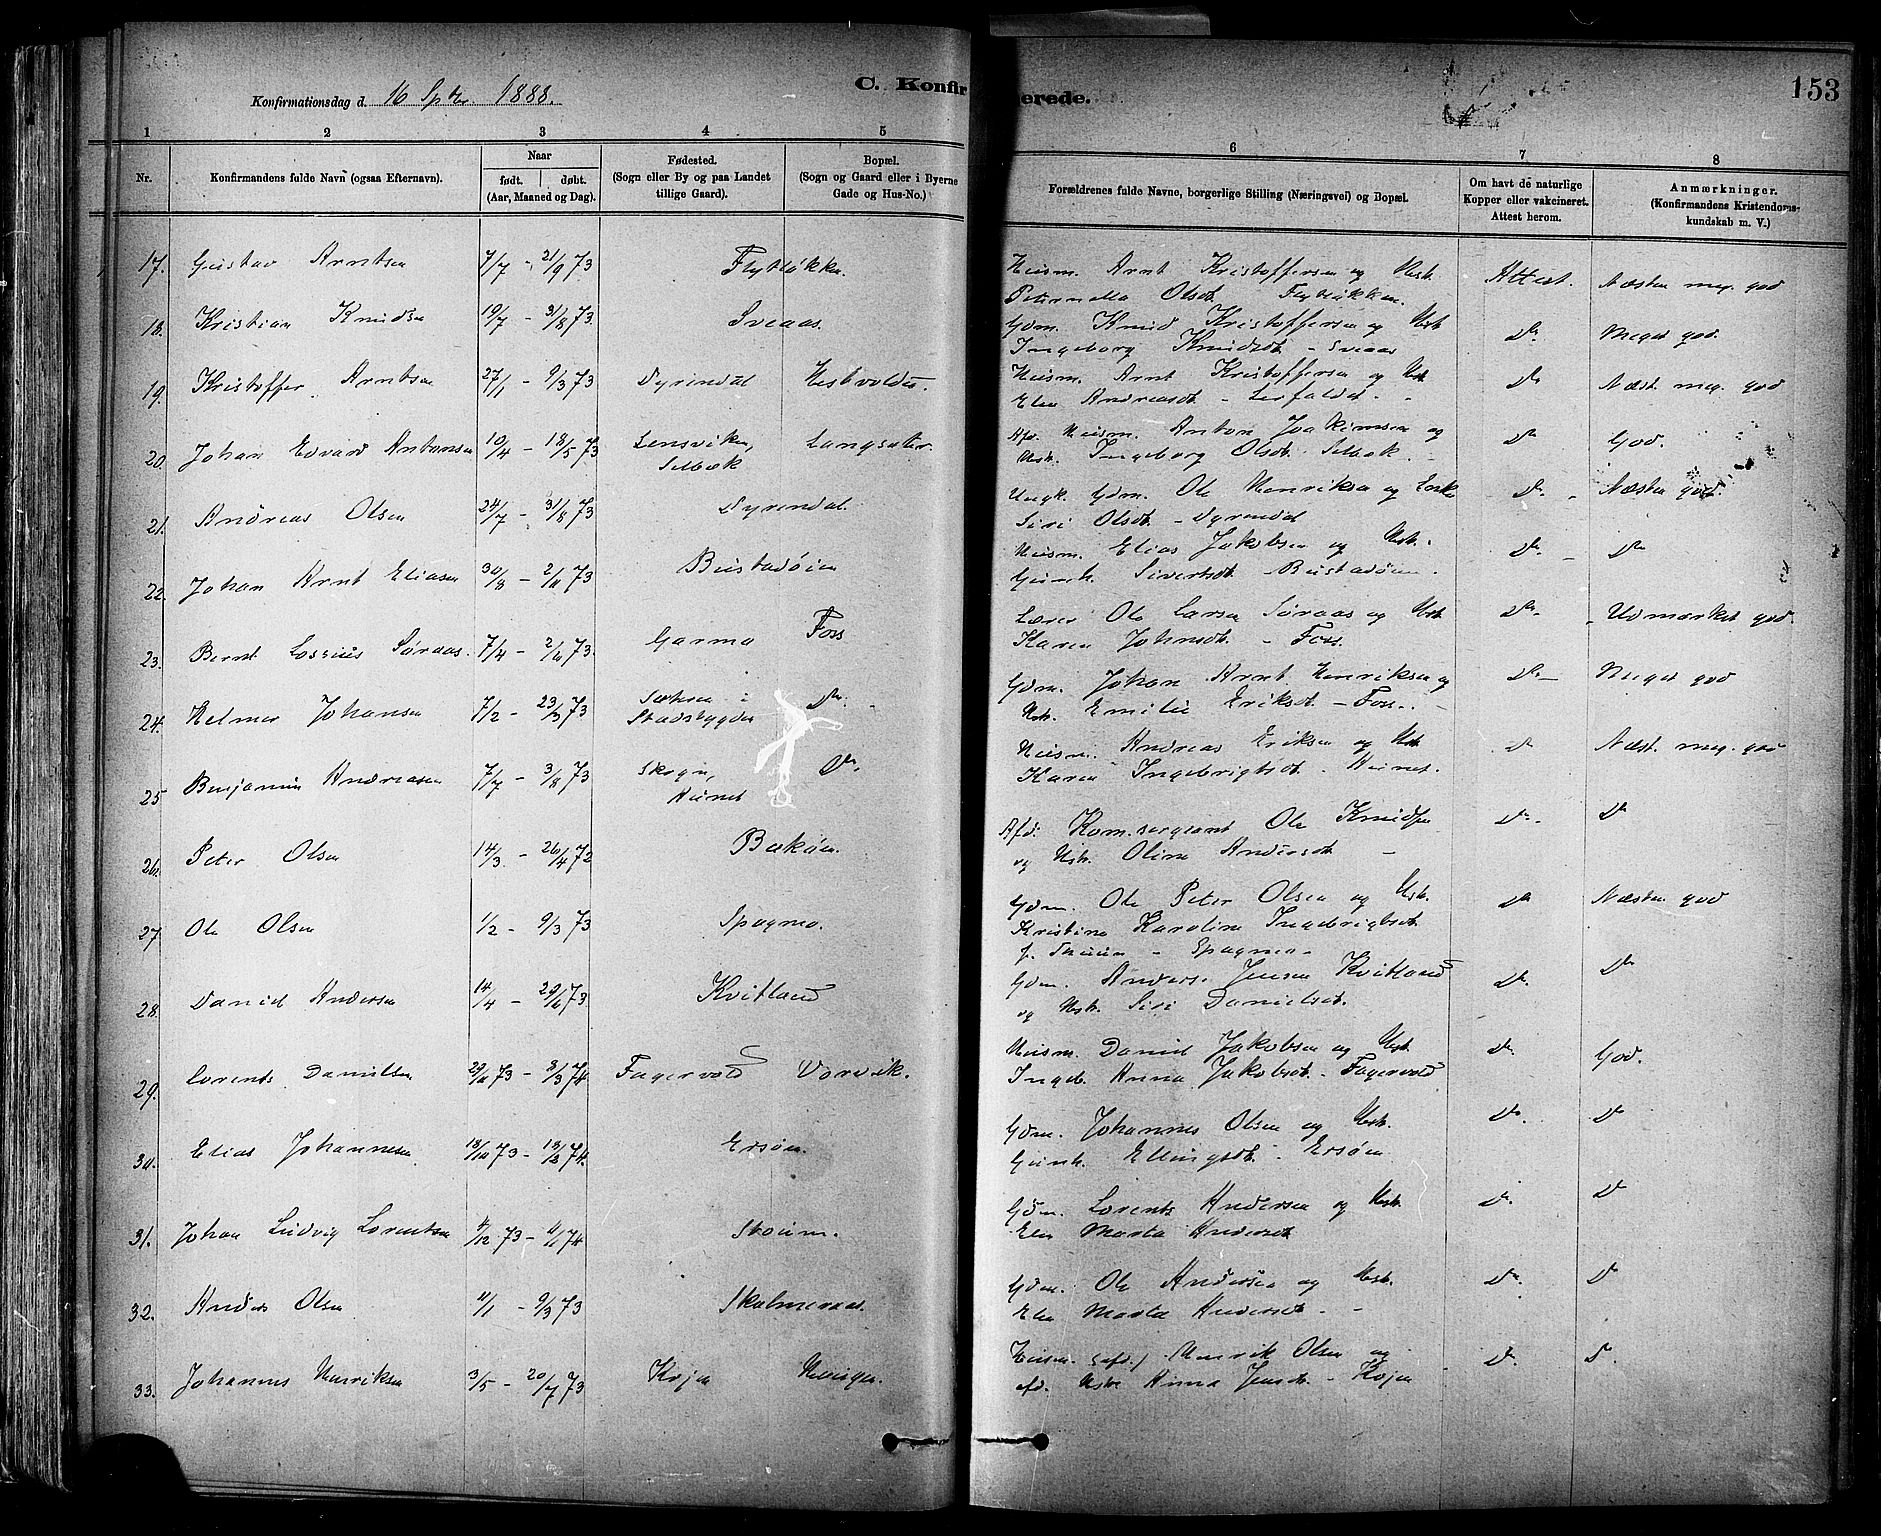 Konfirmationsdag d. 16 Sptbr 1888.
C. Konfirmerede.
153
1 2 3 4 5 6 7 8
Nr. | Konfirmandens fulde Navn (ogsaa Efternavn). | Naar født. | døbt. (Aar, Maaned og Dag). | Fødested. (Sogn eller By og paa Landet tillige Gaard). | Bopæl. (Sogn og Gaard eller i Byerne Gade og Hus-No.) | Forældrenes fulde Navne, borgerlige Stilling (Næringsvei) og Bopæl. | Om havt de naturlige Kopper eller vakcineret. Attest herom. | Anmærkninger. (Konfirmandens Kristendomskundskab m. V.)
17. Gustav Arntsen 7/7 - 21/9 73 Flytløkken. Husm. Arnt Kristoffersen og Hstr. Attest. Næsten meg. god
Peternella Olsdt. Flytløkken.
18. Kristian Knudsen 19/7 - 31/8 73 Sveaas. Gdm. Knud Kristoffersen og Hstr. Do. Meget god.
Ingeborg Knudsdt - Sveaas
19. Kristoffer Arntsen 27/1 - 9/3 73 Dyrendal Hestvolden. Husm. Arnt Kristoffersen og Hstr. Do Næst. meg. god
Elen Andreasdt - Lerfaldet.
20. Johan Edvard Antonsen 10/4 - 18/5 73 Lensviken, Selbæk Langsæter. Afd. Husm. Anton Joakimsen og Do God.
Hstr. Ingeborg Olsdt. Selbæk.
21. Andreas Olsen 24/7 - 31/8 73 Dyrendal Ungk. Gdm. Ole Henriksen og Enke Do. Næsten god.
Siri Olsdt - Dyrendal
22. Johan Arnt Eliasen 30/8 - 2/11 73 Bustadøien Husm. Elias Jakobsen og Hstr. Do. Do
Gunh. Sivertsdt - Bustadøien.
23. Bernt Lossius Søraas. 7/4 - 2/6 73. Garmo Foss Lærer Ole Larsen Søraas og Hstr Do. Udmærket god.
Karen Johnsdt. - Foss.
24. Helmer Johansen 7/2 - 23/3 73 Sætren i Stadsbygden Do. Gdm. Johan Arnt Henriksen og Do Meget god
Hstr. Emilie Eriksdt - Foss.
25 Benjamin Andreasen 7/7 - 3/8 73 Skogn, Do. Husm. Andreas Eriksen og Hstr Do Næst. meg. god
Karen Ingebrigtsdt.
26. Peter Olsen 14/3 - 26/4 72 Bækøien. Afd: Kom.sergeant Ole Knudsen Do. Do
og Hstr. Olina Andersdt -
27. Ole Olsen 1/2 - 9/3 73 Spogmo. Gdm. Ole Peter Olsen og Hstr. Do Næsten god
Kristine Karoline Ingebrigtsdt
28. Daniel Andersen 14/4 - 29/6 73 Kvitland Gdm. Anders Jensen Kvitland Do. Do
og Hstr. Siri Danielsdt.
29. Lorents Danielsen 29/11 73 - 3/3 74 Fagervold Vorvik. Husm. Daniel Jakobsen og Hstr Do. God.
Ingeb. Anna Jakobsdt - Fagervold
30. Elias Johannesen 18/10 73 - 74. Ersøien. Gdm. Johannes Olsen og Hstr. Do. Do
Gunh. Ellingsdt - Ersøien
31. Johan Ludvig Lorentsen 12 73 - 74 Skoium. Gdm. Lorents Andersen og Hstr. Do. Do
Elen Marta Andersdt
32. Anders Olsen 11/1 - 9/3 73 Skalmeraas. Gdm. Ole Andersen og Hstr. Do. Do
Elen Marta Andersdt. -
33. Johannes Henriksen 3/5 - 20/7 73 Kojen Husm. (afd.) Henrik Olsen og Do. Do.
afd. Hstr Anna Jensdt - Kojen